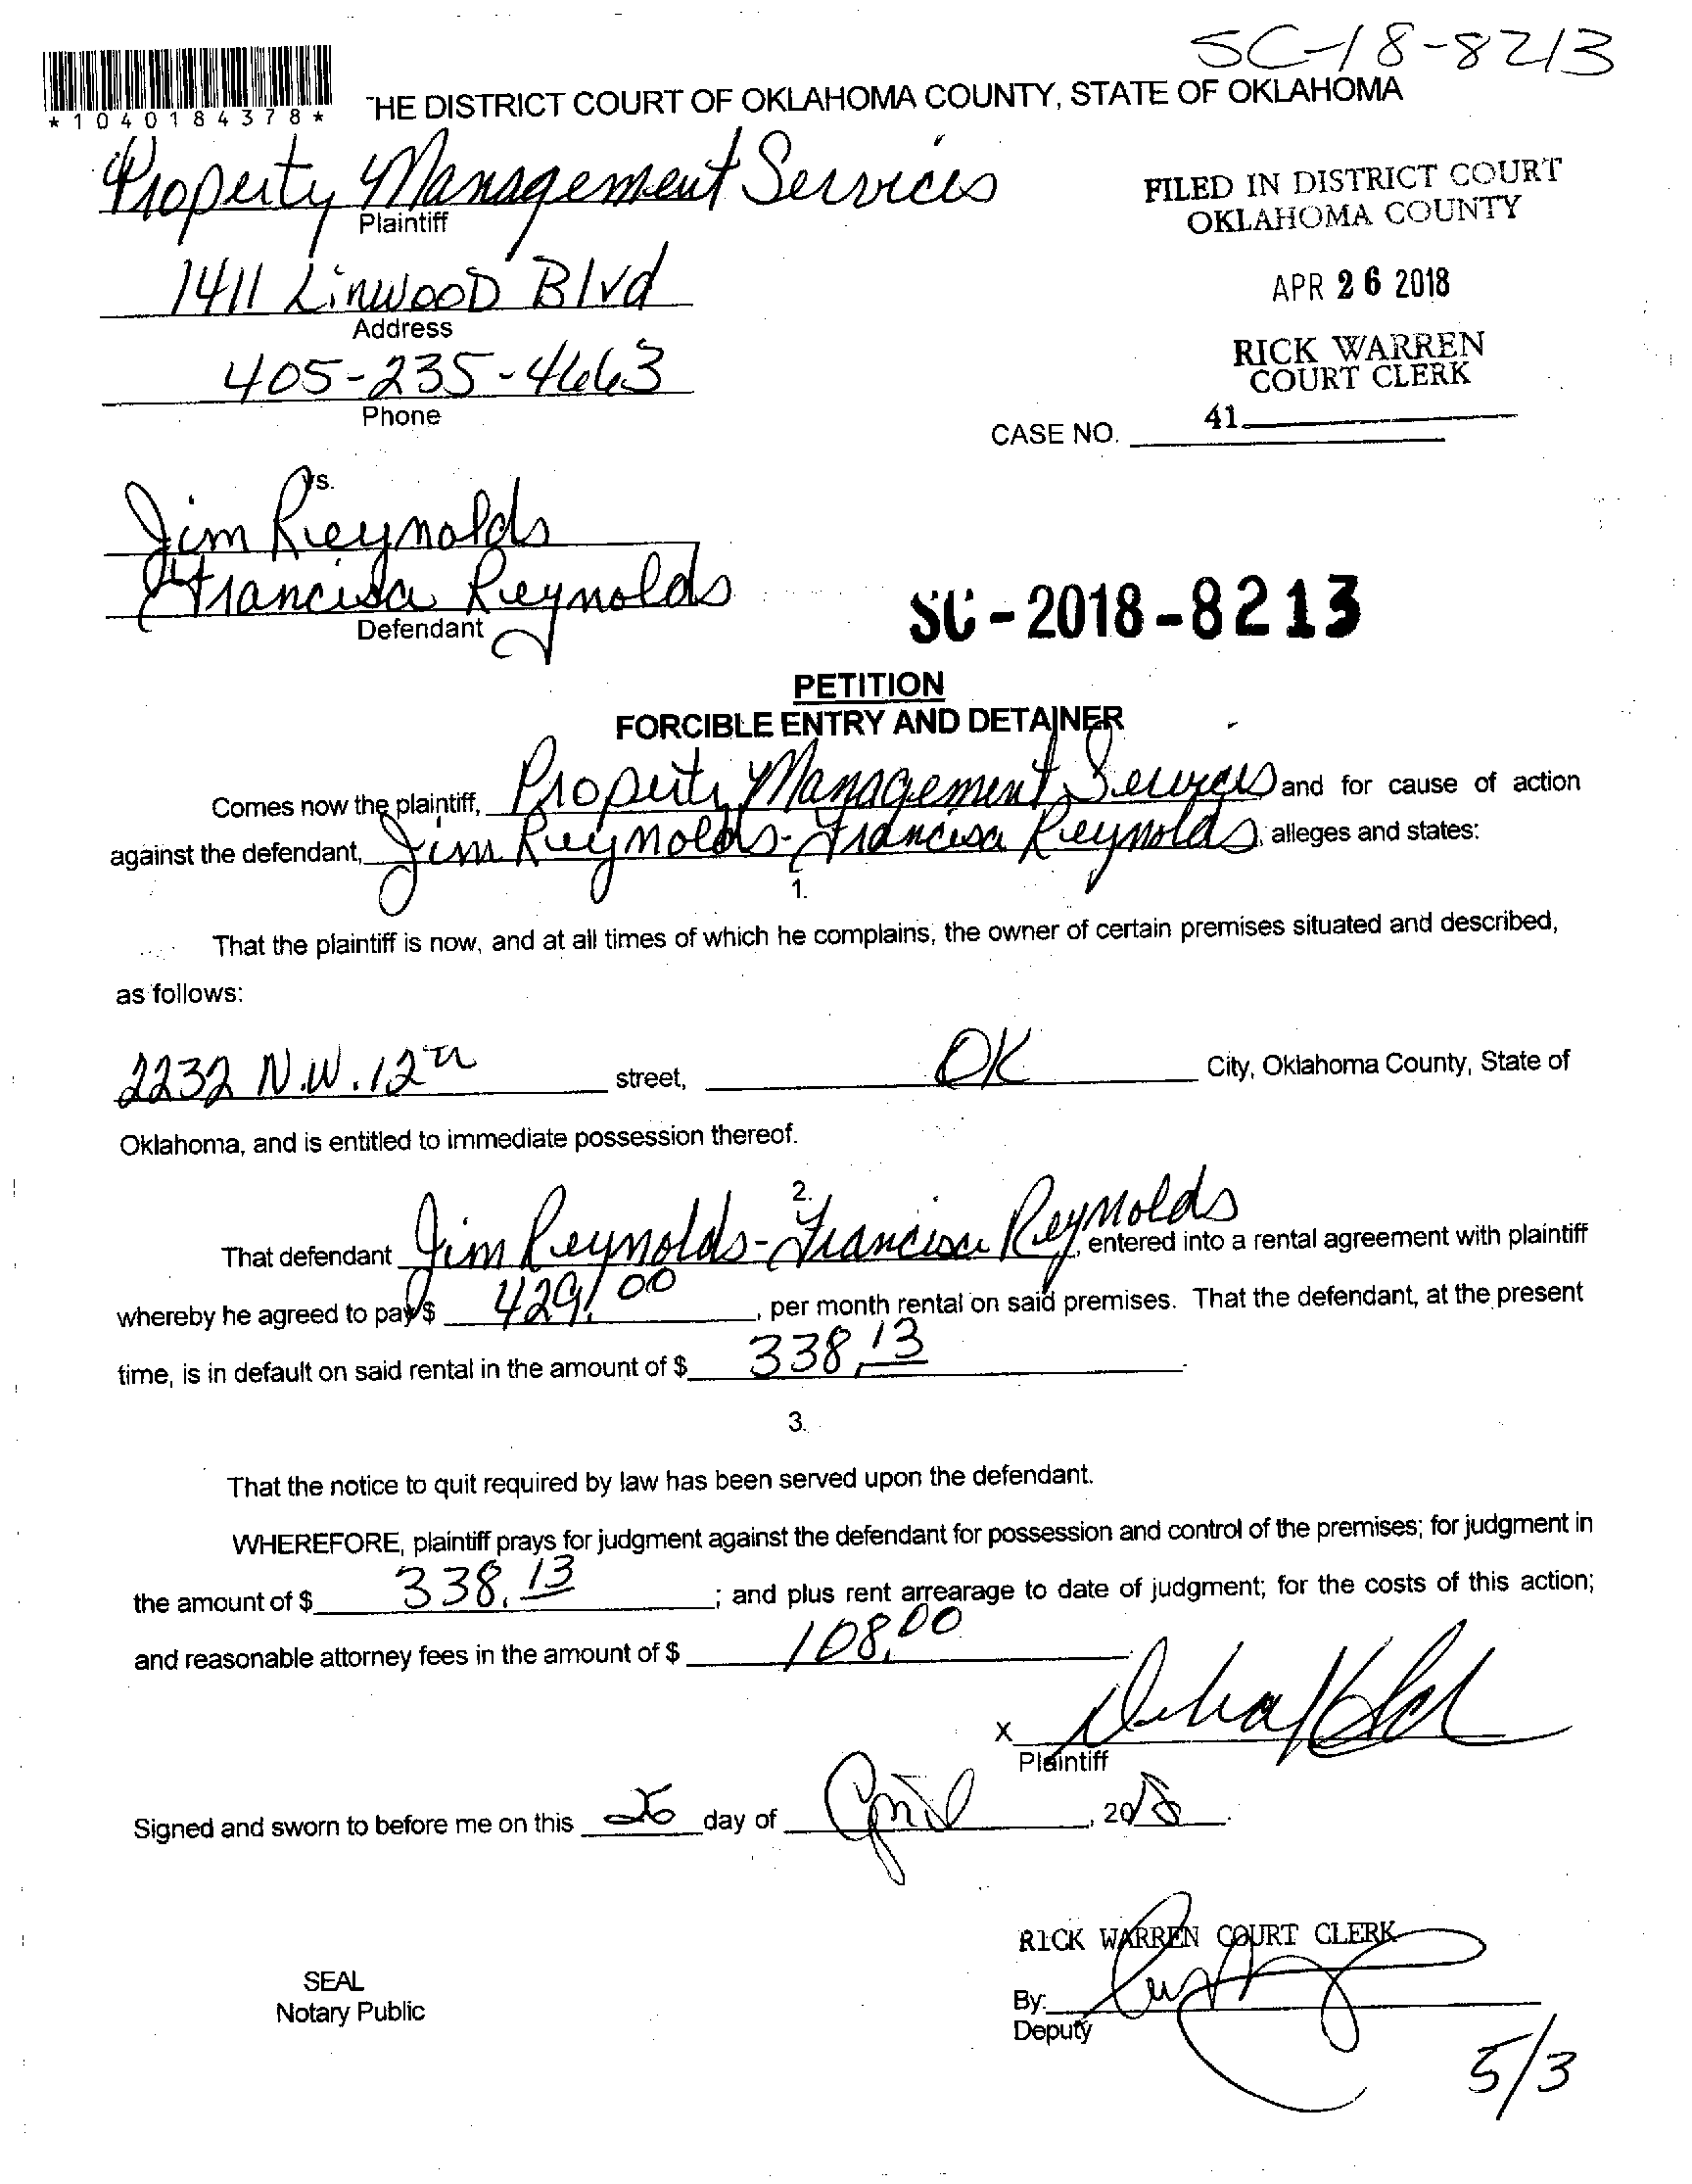 SC-18-8213
*1040184378*
THE DISTRICT COURT OF OKLAHOMA COUNTY, STATE OF OKLAHOMA
Property Management Services
Plaintiff
FILED IN DISTRICT COURT
OKLAHOMA COUNTY
1411 Linwood Blvd
Address
APR 26 2018
405-235-4663
Phone
RICK WARREN
COURT CLERK
41
CASE NO.
vs.
Jim Reynolds
Francisca Reynolds
Defendant
SC-2018-8213
PETITION
FORCIBLE ENTRY AND DETAINER
Comes now the plaintiff, Property Management Services and for cause of action
against the defendant, Jim Reynolds-Francisca Reynolds, alleges and states:
1.
That the plaintiff is now, and at all times of which he complains, the owner of certain premises situated and described,
as follows:
2232 N.W. 12th street, OK City, Oklahoma County, State of
Oklahoma, and is entitled to immediate possession thereof.
2.
That defendant Jim Reynolds-Francisca Reynolds, entered into a rental agreement with plaintiff
whereby he agreed to pay $ 429.00, per month rental on said premises. That the defendant, at the present
time, is in default on said rental in the amount of $ 338.13
3.
That the notice to quit required by law has been served upon the defendant.
WHEREFORE, plaintiff prays for judgment against the defendant for possession and control of the premises; for judgment in
the amount of $ 338.13; and plus rent arrearage to date of judgment; for the costs of this action;
and reasonable attorney fees in the amount of $ 108.00
X
Plaintiff
Signed and sworn to before me on this 26 day of April, 2018.
RICK WARREN COURT CLERK
SEAL
Notary Public
By:
Deputy
5/3